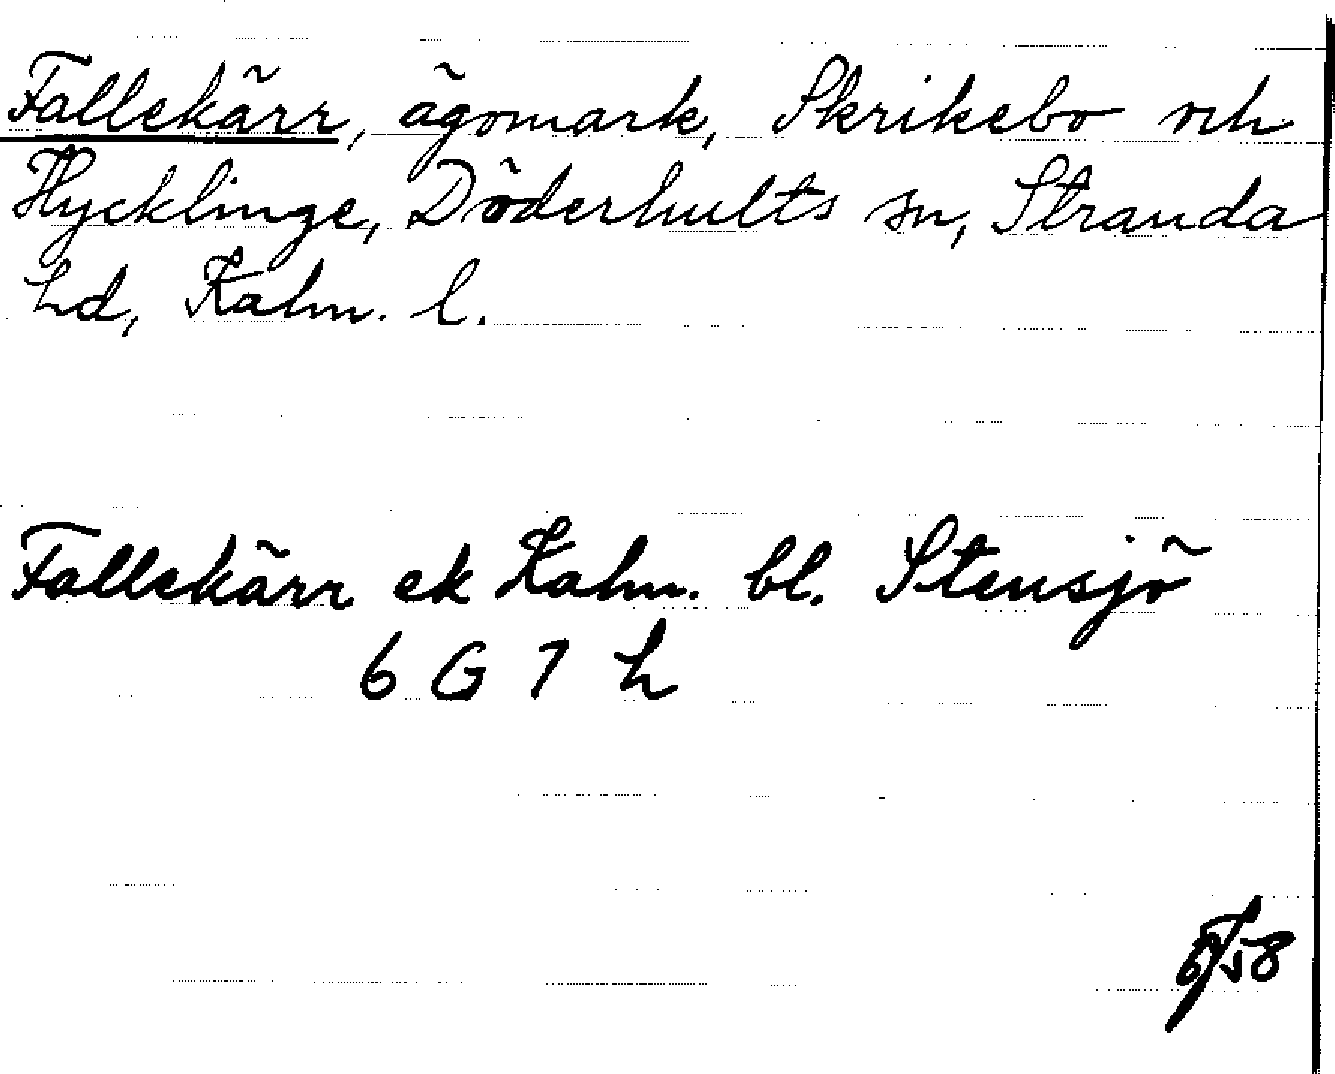 Fallekärr, ägomark, Skrikebo och
Hycklinge, Döderhults sn, Stranda
hd, Kalm. l.
Fallekärr ek Kalm. bl. Stensjö
6 G 7 h